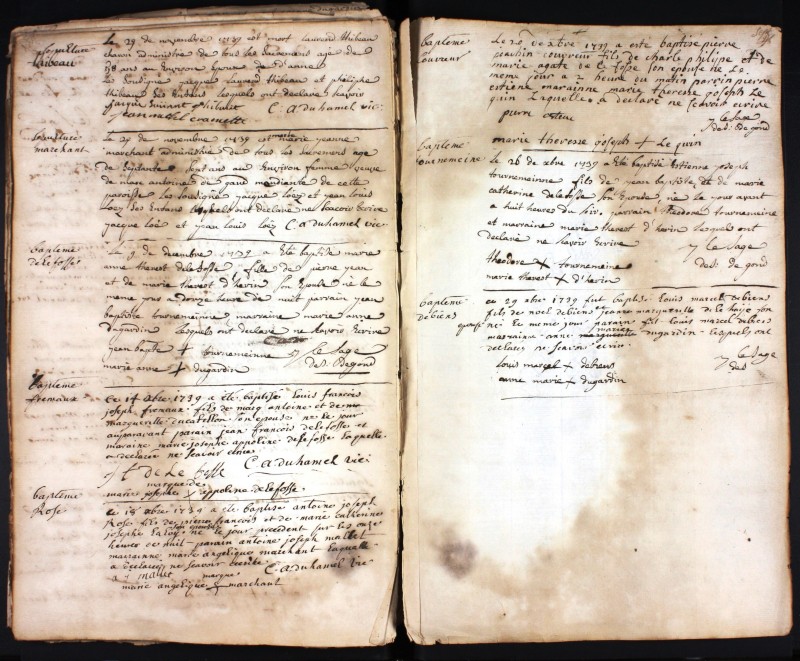 sepulture
tibeau
le 29 de novembre 1739 est mort laurend thibeau
administré de tous les sacremens agé de
38 ans au environ epoux de d'annes
les sousignés jacques laurend thibeau et philiphe
thibeau ses enfans lesquels ont declare scavoir
C. A duhamel vic:
sepulture
marchant
le 29 de novembre 1739 est morte marie jeanne
marchant administrée de tous les sacremens agé
de septante sept ans au environ femme veuve
de marc antoinne de gand mendiante de cette
paroisse les soussignés jacque loéz et jean louis
loéz ses enfans lesquels ont declaré ne scavoir écrire
jacque loéz et jean louis loéz C. a duhamel vic
bapteme
de le fosse
le 9 de decembre 1739 a été baptisé marie
anne therese delefosse fille de pierre jean
et de marie therese d'herin son epouse né le
meme jour a douze heure de nuit parrain jean
baptiste tournemeinne marraine marie anne
dugardin lesquels ont declaré ne scavoir écrire
jean bapte + tournemeinne J le Sage
marie anne + dugardin des. Begond
bapteme
fremaux
ce 14 xbre 1739 a été baptisé louis francois
joseph fremaux fils de marcq antoine et de
marguerite ducatillon son epouse né le jour
auparavant parain jean francois delefosse et
maraine marie josephe appoline delefosse laquelle
a declaré ne scavoir ecrire
f de le fosse C. A duhamel vic:
marque de
marie josephe x appoline delefosse
bapteme
Rose
ce 15 xbre 1739 a été baptisé antoine joseph
Rose fils de pierre francois et de marie catherine
josephe laloy son epouse né le jour precedent sur les onze
heures de nuit parain antoine joseph mallet
marainne marie angelique marchant laquelle
a declaré ne scavoir ecrire
C. a duhamel vic
a j mallet marque
marie angelique x marchant
bapteme
couvreur
le 20 de xbre 1739 a este baptisé pierre
joachim couvreur fils de charle philippe et de
marie agate de le fosse son epouse né le
meme jour a 2 heure du matin parain pierre
estiene, marainne marie theresse joseph le
quin laquelle a declaré ne scavoir ecrire
pierre estiene J le Sage
des. Be gond
marie theresse joseph + le quin
bapteme
tournemeine
le 26 de xbre 1739 a été baptisé estienne joseph
tournemeinne fils de jean baptiste, et de marie
catherine delefosse son epouse, né le jour avant
a huit heures du soir, parrain theodore tournemeine
et marraine marie therese d'herin lesquels ont
declaré ne scavoir ecrire J le Sage
des: de gond
theodore + tournemeine
marie therese + d'herin
bapteme
debiens
ce 29 xbre 1739 fut baptisé louis marcel debiens
fils de noel debiens jeanne marguerite de le haye son
epouse né le meme jour parain fût louis marcel debiens
marraine anne marie dugardin lesquels ont
declarés ne scavoir ecrire
J le Sage
des
louis marcel x debiens
anne marie x dugardin